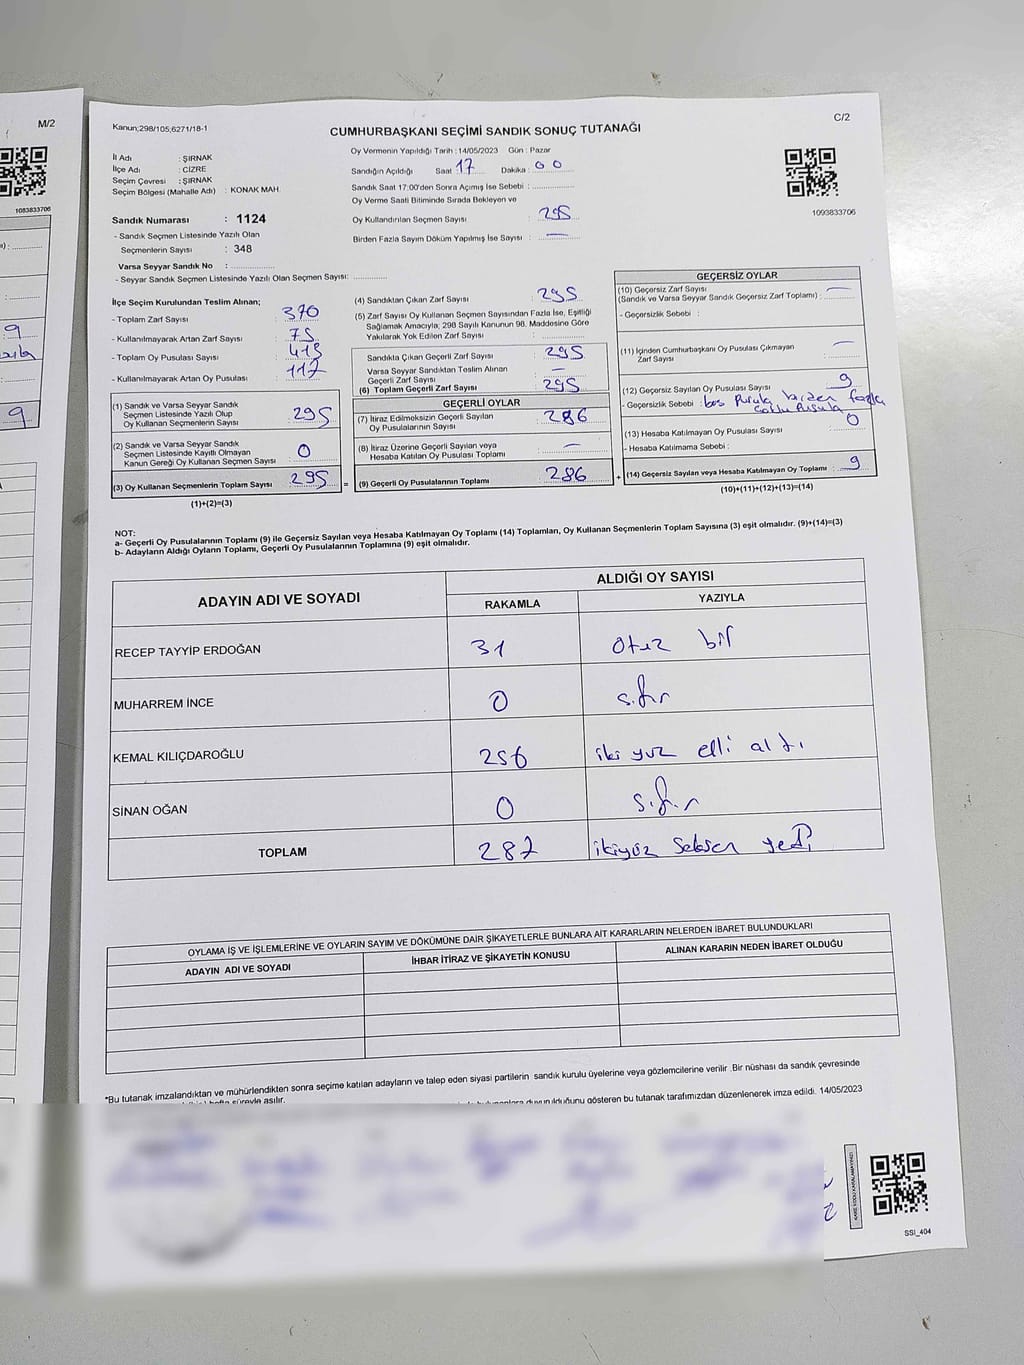 M/2
1083833706
9
9
Kanun;298/105,6271/18-1
C/2
CUMHURBAŞKANI SEÇİMİ SANDIK SONUÇ TUTANAĞI
İl Adı : ŞIRNAK
İlçe Adı : CİZRE
Seçim Çevresi : ŞIRNAK
Seçim Bölgesi (Mahalle Adı) : KONAK MAH.
Oy Vermenin Yapıldığı Tarih : 14/05/2023 Gün : Pazar
Sandığın Açıldığı Saat 17 Dakika : 00
Sandık Saat 17:00'den Sonra Açımış İse Sebebi :
Oy Verme Saati Bitiminde Sırada Bekleyen ve
Oy Kullandırılan Seçmen Sayısı : 295
Birden Fazla Sayım Döküm Yapılmış İse Sayısı : —
1093833706
Sandık Numarası : 1124
- Sandık Seçmen Listesinde Yazılı Olan
Seçmenlerin Sayısı : 348
Varsa Seyyar Sandık No :
- Seyyar Sandık Seçmen Listesinde Yazılı Olan Seçmen Sayısı:
İlçe Seçim Kurulundan Teslim Alınan;
- Toplam Zarf Sayısı : 370
- Kullanılmayarak Artan Zarf Sayısı : 75
- Toplam Oy Pusulası Sayısı : 413
- Kullanılmayarak Artan Oy Pusulası : 117
(1) Sandık ve Varsa Seyyar Sandık
Seçmen Listesinde Yazılı Olup
Oy Kullanan Seçmenlerin Sayısı : 295
(2) Sandık ve Varsa Seyyar Sandık
Seçmen Listesinde Kayıtlı Olmayan
Kanun Gereği Oy Kullanan Seçmen Sayısı : 0
(3) Oy Kullanan Seçmenlerin Toplam Sayısı : 295 =
(1)+(2)=(3)
(4) Sandıktan Çıkan Zarf Sayısı : 295
(5) Zarf Sayısı Oy Kullanan Seçmen Sayısından Fazla İse, Eşitliği
Sağlamak Amacıyla; 298 Sayılı Kanunun 98. Maddesine Göre
Yakılarak Yok Edilen Zarf Sayısı :
Sandıkta Çıkan Geçerli Zarf Sayısı : 295
Varsa Seyyar Sandıktan Teslim Alınan
Geçerli Zarf Sayısı : —
(6) Toplam Geçerli Zarf Sayısı : 295
GEÇERLİ OYLAR
(7) İtiraz Edilmeksizin Geçerli Sayılan
Oy Pusulasının Sayısı : 286
(8) İtiraz Üzerine Geçerli Sayılan veya
Hesaba Katılan Oy Pusulası Toplamı : —
(9) Geçerli Oy Pusulalarının Toplamı : 286 +
GEÇERSİZ OYLAR
(10) Geçersiz Zarf Sayısı : —
(Sandık ve Varsa Seyyar Sandık Geçersiz Zarf Toplamı)
- Geçersizlik Sebebi :
(11) İçinden Cumhurbaşkanı Oy Pusulası Çıkmayan
Zarf Sayısı : —
(12) Geçersiz Sayılan Oy Pusulası Sayısı : 9
- Geçersizlik Sebebi : boş Pusula birden fazla
(13) Hesaba Katılmayan Oy Pusulası Sayısı : 0
- Hesaba Katılmama Sebebi :
(14) Geçersiz Sayılan veya Hesaba Katılmayan Oy Toplamı : 9
(10)+(11)+(12)+(13)=(14)
NOT:
a- Geçerli Oy Pusulasının Toplamı (9) ile Geçersiz Sayılan veya Hesaba Katılmayan Oy Toplamı (14) Toplamları, Oy Kullanan Seçmenlerin Toplam Sayısına (3) eşit olmalıdır. (9)+(14)=(3)
b- Adayların Aldığı Oyların Toplamı, Geçerli Oy Pusulalarının Toplamına (9) eşit olmalıdır.
ADAYIN ADI VE SOYADI ALDIĞI OY SAYISI
RAKAMLA YAZIYLA
RECEP TAYYİP ERDOĞAN 31 otuz bir
MUHARREM İNCE 0 sıfır
KEMAL KILIÇDAROĞLU 256 iki yüz elli altı
SİNAN OĞAN 0 sıfır
TOPLAM 287 ikiyüz seksen yedi
OYLAMA İŞ VE İŞLEMLERİNE VE OYLARIN SAYIM VE DÖKÜMÜNE DAİR ŞİKAYETLERLE BUNLARA AİT KARARLARIN NELERDEN İBARET BULUNDUKLARI
ADAYIN ADI VE SOYADI İHBAR İTİRAZ VE ŞİKAYETİN KONUSU ALINAN KARARIN NEDEN İBARET OLDUĞU
*Bu tutanak imzalandıktan ve mühürlendikten sonra seçime katılan adayların ve talep eden siyasi partilerin sandık kurulu üyelerine veya gözlemcilerine verilir .Bir nüshası da sandık çevresinde
hafta süreyle asılır.
duyurulduğunu gösteren bu tutanak tarafımızdan düzenlenerek imza edildi. 14/05/2023
SSI_404